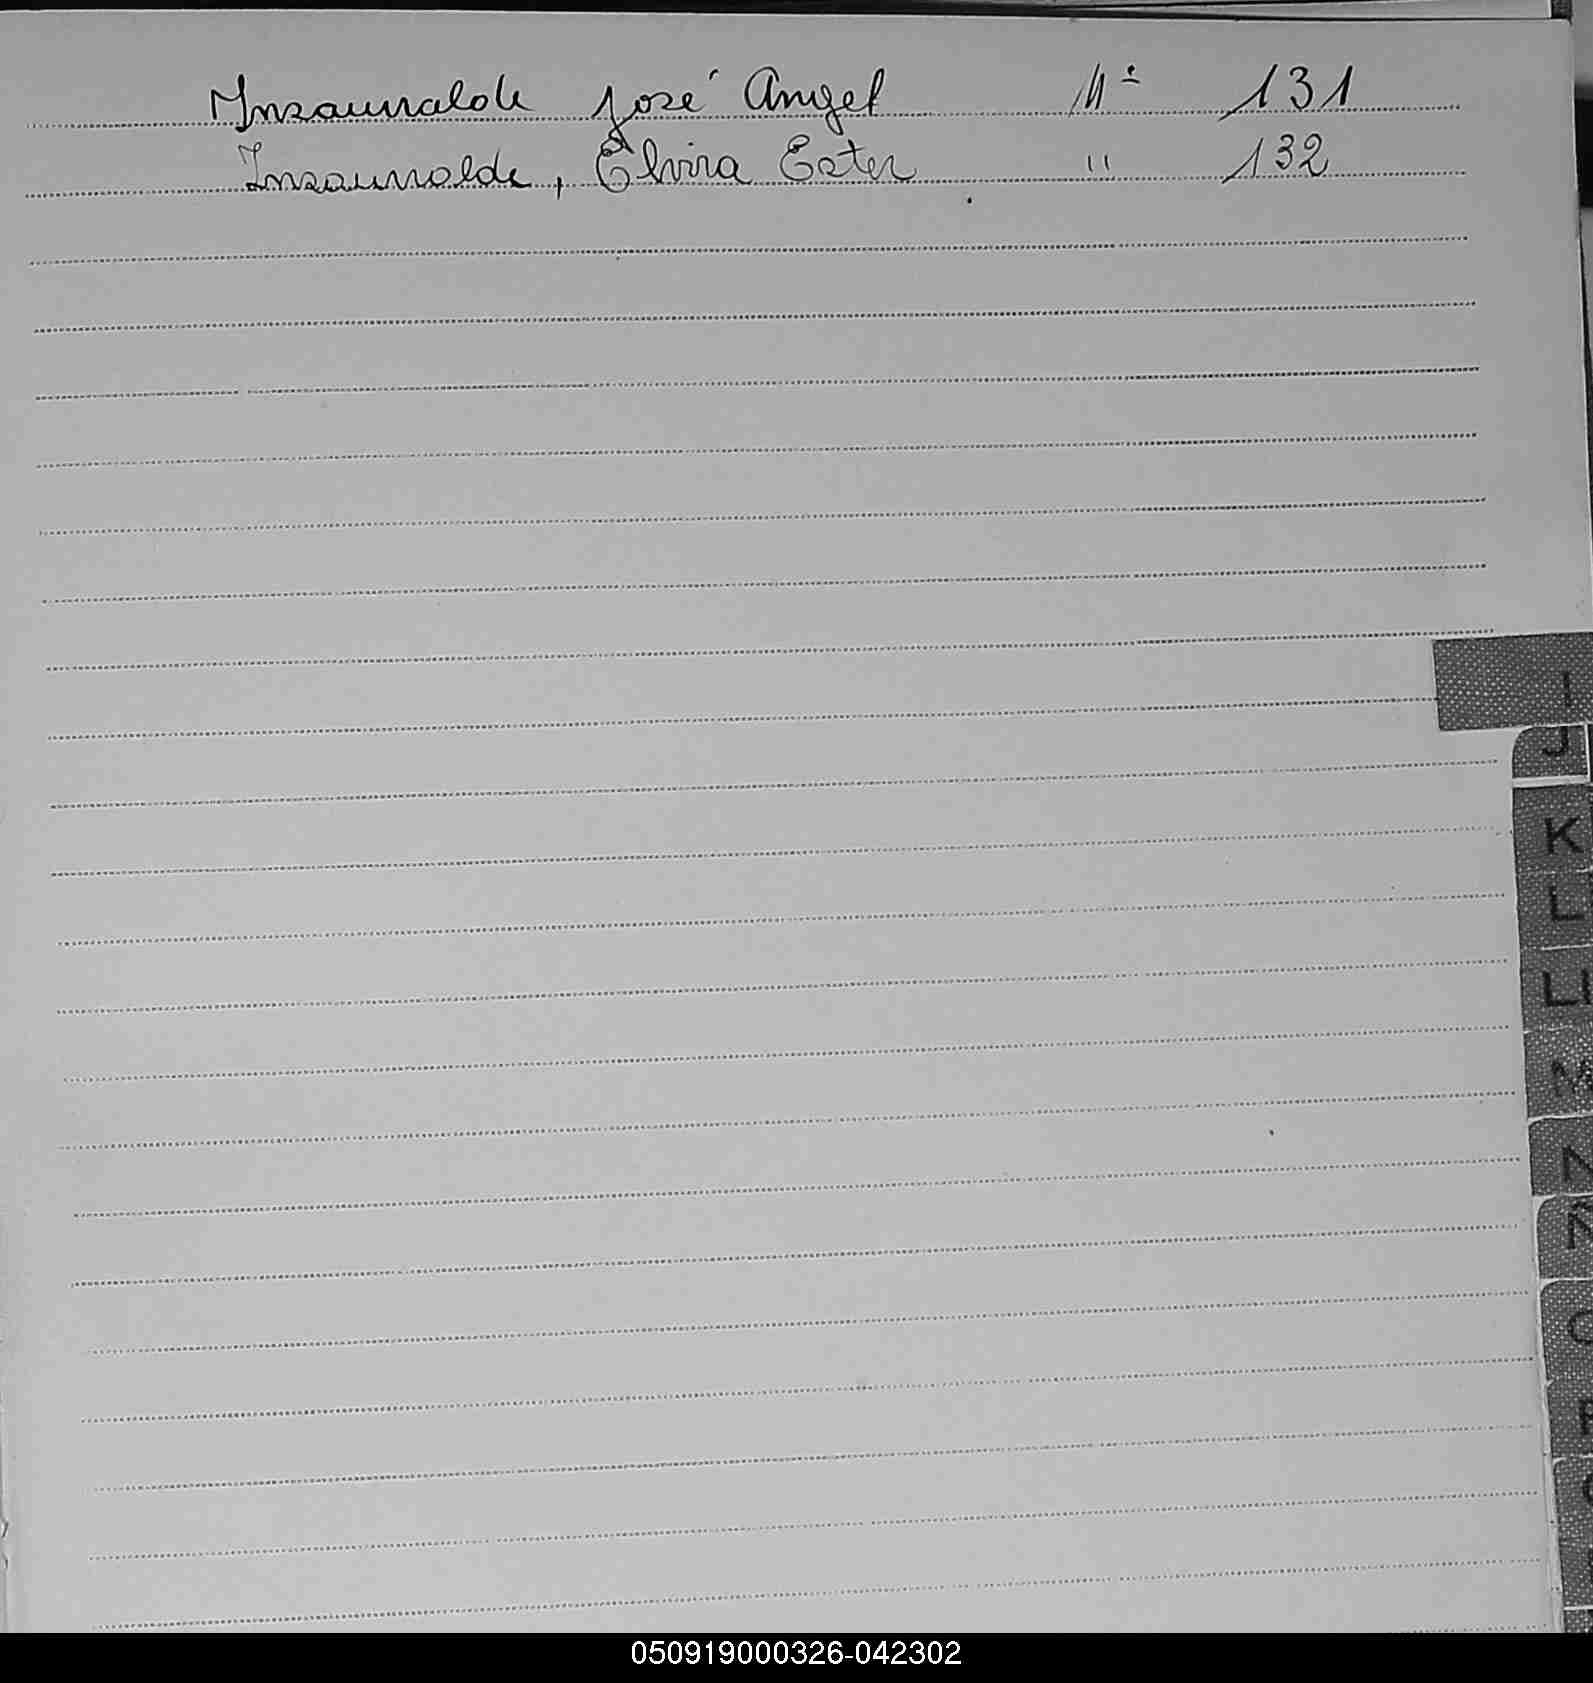 Insaurralde José Angel Nº 131
Insaurralde, Elvira Ester " 132
I
J
K
L
Ll
M
N
Ñ
O
P
050919000326-042302